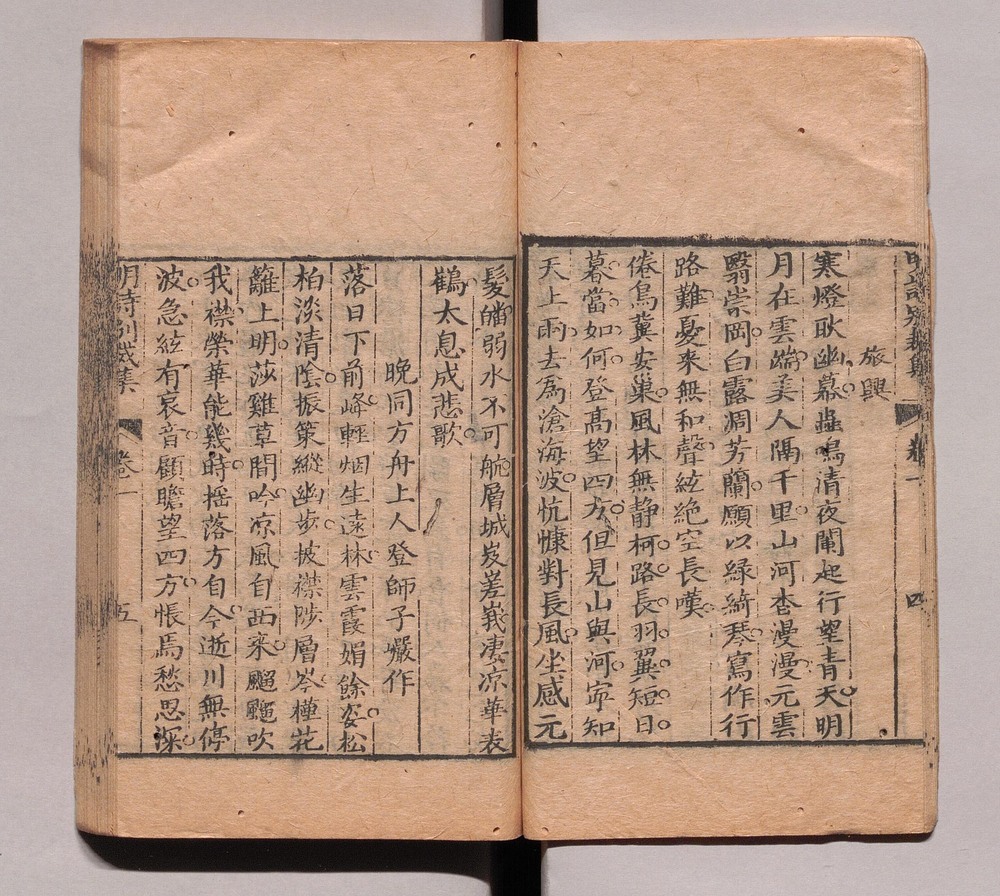 旅興
寒燈耿幽幕蟲鳴清夜闌起行望青天明
月在雲端美人隔千里山河杳漫漫元雲
翳崇岡白露凋芳蘭願以綠綺琴寫作行
路難憂来無和聲絃絕空長嘆
倦鳥冀安巢風林無静柯路長羽翼短日
暮當如何登高望四方但見山與河寜知
天上雨去為滄海波忼慷對長風坐感元
髮皤弱水不可航層城岌嵳峩凄凉華表
鶴太息成悲歌
晚同方舟上人登師子巖作
落日下前峰輕烟生遠林雲霞媚餘姿松
柏淡清陰振策縱幽歩披襟陟層岑槿花
籬上明莎雞草間吟凉風自西来飀飀吹
我襟榮華能幾時揺落方自今逝川無停
波急絃有哀音顧瞻望四方悵焉愁思深
明詩別裁集
卷一
五
卷一
四